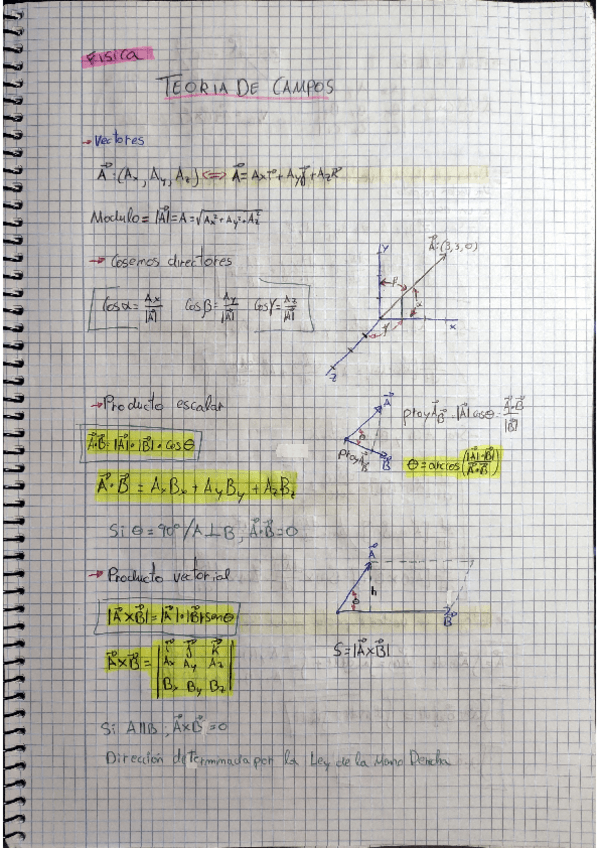 FISICA
TEORIA DE CAMPOS
→ Vectores
A⃗:(Ax, Ay, Az) <=> A⃗=Ax i⃗+Ay j⃗+Az k⃗
Modulo = |A⃗|=A=√Ax²+Ay²+Az²
→ Cosemos directores
Cosα=Ax/|A⃗| Cosβ=Ay/|A⃗| Cosγ=Az/|A⃗|
y
A⃗:(3,3,0)
β
α
γ
x
z
→ Producto escalar
A⃗·B⃗=|A⃗|·|B⃗|·cosθ
A⃗·B⃗ = AxBx + AyBy + AzBz
A⃗
θ
proyA⃗B⃗
B⃗
proyA⃗B⃗=|A⃗|cosθ=A⃗·B⃗/|B⃗|
θ=arccos(|A⃗|·|B⃗|/A⃗·B⃗)
Si θ=90°/A⊥B; A⃗·B⃗=0
→ Producto vectorial
|A⃗xB⃗|=|A⃗|·|B⃗|senθ
A⃗xB⃗ = | i⃗ j⃗ k⃗
Ax Ay Az
Bx By Bz |
A⃗
h
θ
B⃗
S=|A⃗xB⃗|
Si A||B; A⃗xB⃗=0
Dirección determinada por la Ley de la Mano Derecha